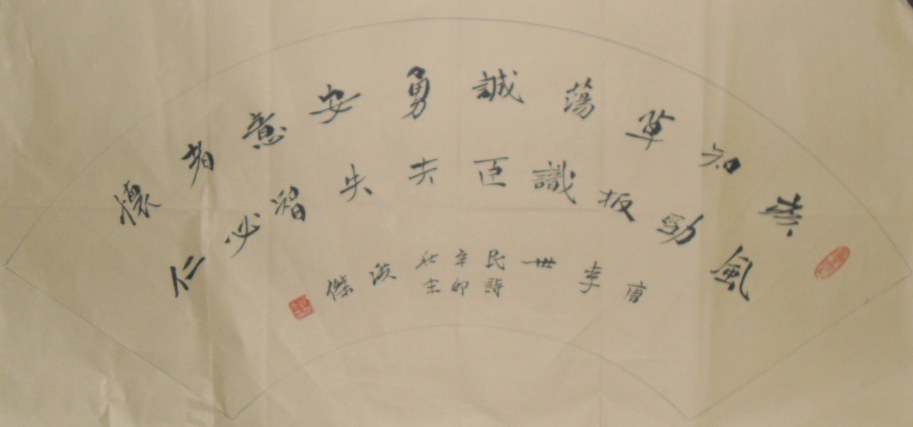 疾風
知勁
草板
蕩識
誠臣
勇夫
安失
意智
者必
懷仁
唐李世民詩
辛卯
傑